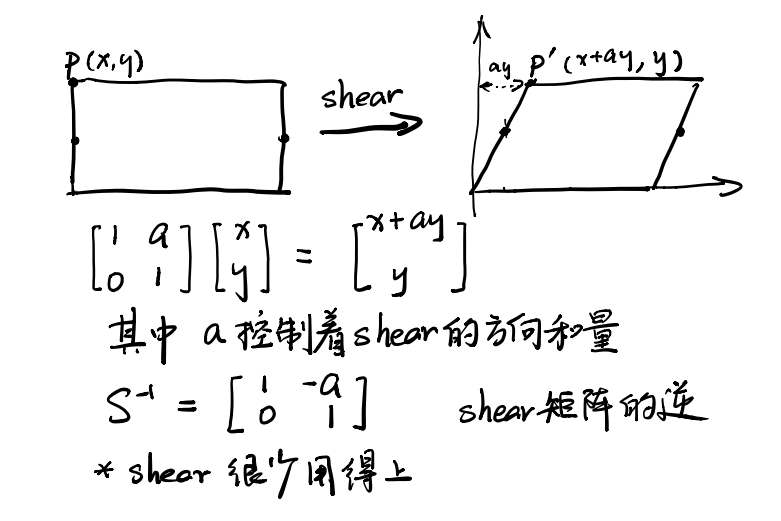 P(x,y)
shear
ay
P'(x+ay, y)
[1 a
0 1] [x
y] = [x+ay
y]
其中 a控制着shear的方向和量
S⁻¹ = [1 -a
0 1]
shear矩阵的逆
* shear 很少用得上